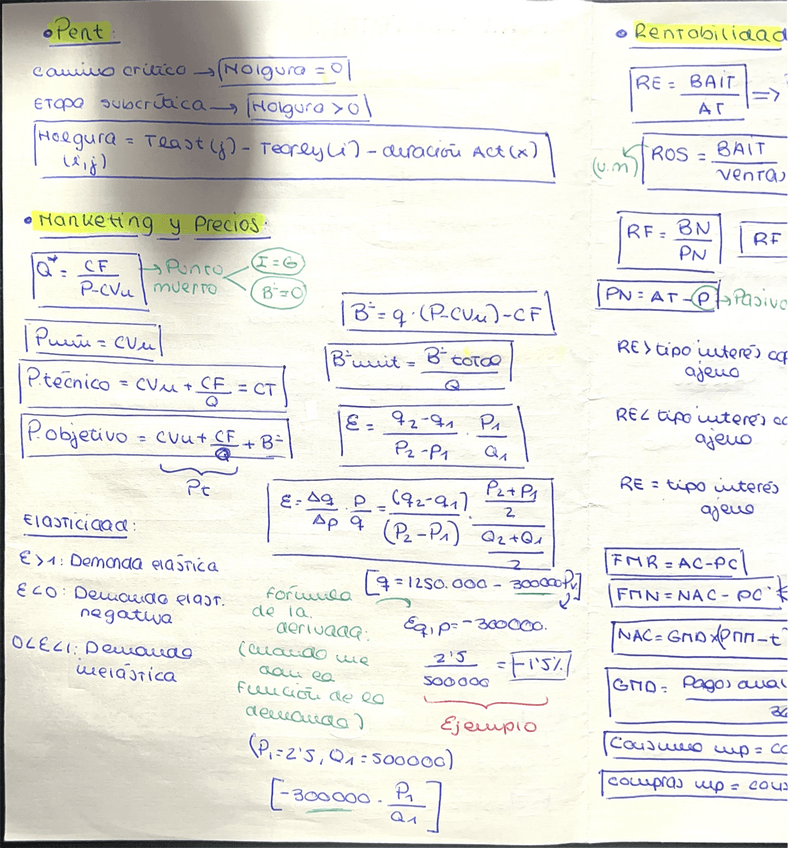 • Pert:
camino crítico → Holgura = 0
Etapa subcrítica → Holgura > 0
Holgura = Tlast(j) - Tearley(i) - duración Act(x)
(i,j)
• Marketing y Precios:
Q* = CF / P-CVu → Punto muerto < I=G
B°=0
Pmín = CVu
P.técnico = CVu + CF/Q = CT
P.objetivo = CVu + CF/Q + B°
Pt
B° = q · (P-CVu) - CF
B° unit = B° total / Q
ε = q2-q1 / P2-P1 · P1 / Q1
ε = Δq / Δp · p / q = (q2-q1) / (P2-P1) · P2+P1 / 2 / Q2+Q1 / 2
Elasticidad:
ε>1: Demanda elástica
ε<0: Demanda elast.
negativa
0<ε<1: Demanda
inelástica
[q = 1250.000 - 300000Pv]
fórmula
de la
derivada:
(cuando me
dan la
función de la
demanda)
εq,p = -300000.
2'5 / 500000 = -1'5%
Ejemplo
(P1=2'5, Q1=500000)
[-300000 · P1 / Q1]
• Rentabilidad
RE = BAIT / AT =>
(u.m) ROS = BAIT / ventas
RF = BN / PN
RF
PN = AT - P → Pasivo
RE > tipo interés
ajeno
RE < tipo interés
ajeno
RE = tipo interés
ajeno
FMR = AC-PC
FMN = NAC - PC
NAC = GMD x (PMM-t
GMD = Pagos
Consumo mp = co
compras mp = cons